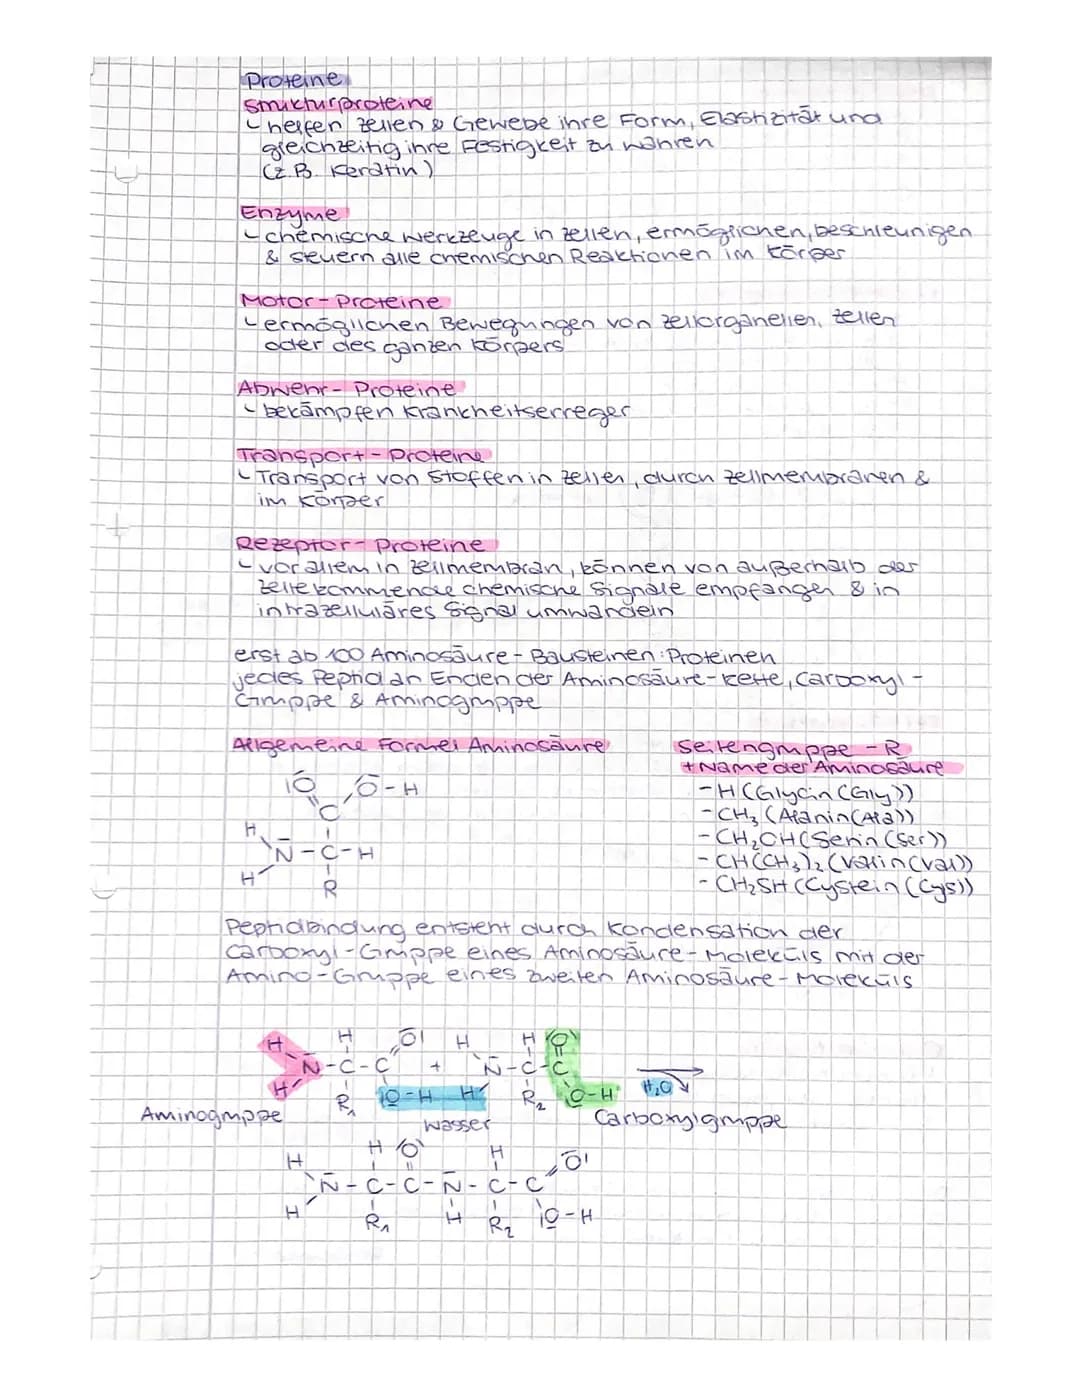 Proteine
Strukturproteine
helfen Zellen & Gewebe ihre Form, Elastizität und
gleichzeitig ihre Festigkeit zu wahren
(z.B. Keratin)
Enzyme
chemische Werkzeuge in Zellen, ermöglichen, beschleunigen
& steuern alle chemischen Reaktionen im Körper
Motor-Proteine
ermöglichen Bewegungen von Zellorganellen, Zellen
oder des ganzen Körpers
Abwehr-Proteine
bekämpfen Krankheitserreger
Transport-Proteine
Transport von Stoffen in Zellen, durch Zellmembranen &
im Körper
Rezeptor-Proteine
vor allem in Zellmembran, können von außerhalb der
Zelle kommende chemische Signale empfangen & in
intrazelluläres Signal umwandeln
erst ab 100 Aminosäure-Bausteinen: Proteinen
jedes Peptid an Enden der Aminosäure-Kette, Carboxyl-
Gruppe & Aminogruppe
Allgemeine Formel Aminosäure
O O-H
C
H
N-C-H
H
R
Seitengruppe -R
+Name der Aminosäure
-H (Glycin (Gly))
-CH₃ (Alanin (Ala))
-CH₂OH (Serin (Ser))
-CH(CH₃)₂ (Valin (Val))
-CH₂SH (Cystein (Cys))
Peptidbindung entsteht durch Kondensation der
Carboxyl-Gruppe eines Aminosäure-Moleküls mit der
Amino-Gruppe eines zweiten Aminosäure-Moleküls
H H O H H O
N-C-C + N-C-C
H R₁ O-H H R₂ O-H H₂O
Aminogruppe Wasser Carboxylgruppe
H H O H O
N-C-C-N-C-C
H R₁ H R₂ O-H